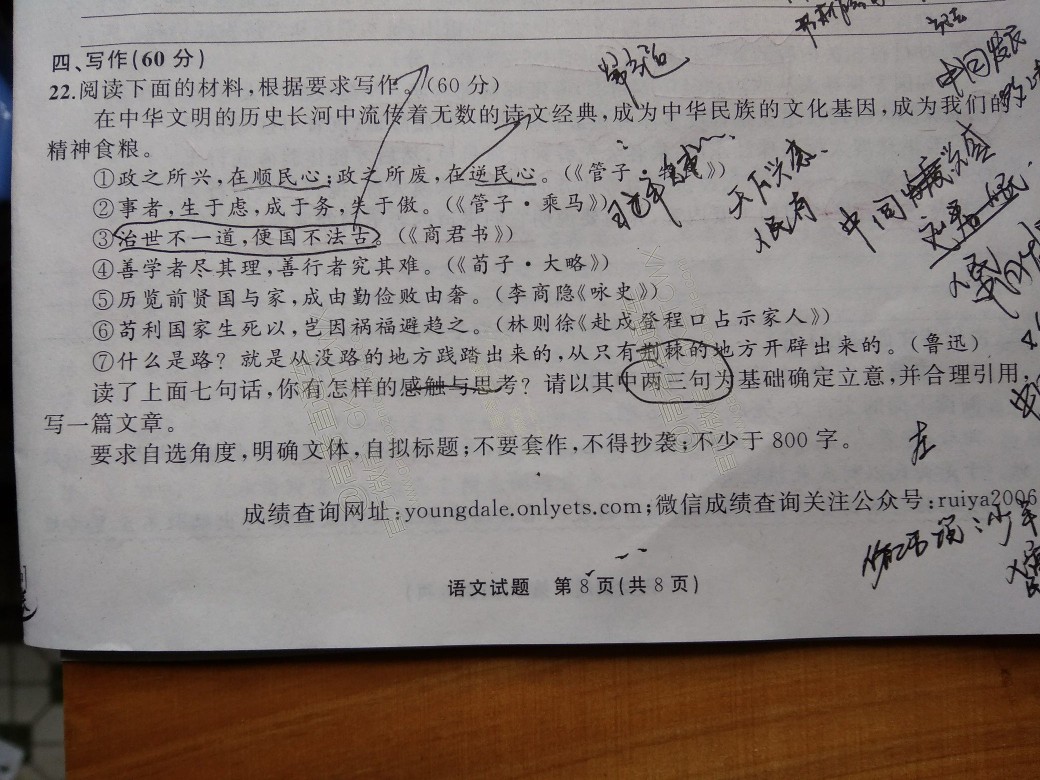 四、写作(60分)
22.阅读下面的材料,根据要求写作。(60分)
在中华文明的历史长河中流传着无数的诗文经典,成为中华民族的文化基因,成为我们的
精神食粮。
①政之所兴,在顺民心;政之所废,在逆民心。(《管子·牧民》)
②事者,生于虑,成于务,失于傲。(《管子·乘马》)
③治世不一道,便国不法古。(《商君书》)
④善学者尽其理,善行者究其难。(《荀子·大略》)
⑤历览前贤国与家,成由勤俭败由奢。(李商隐《咏史》)
⑥苟利国家生死以,岂因祸福避趋之。(林则徐《赴戍登程口占示家人》)
⑦什么是路?就是从没路的地方践踏出来的,从只有荆棘的地方开辟出来的。(鲁迅)
读了上面七句话,你有怎样的感触与思考?请以其中两三句为基础确定立意,并合理引用,
写一篇文章。
要求自选角度,明确文体,自拟标题;不要套作,不得抄袭;不少于800字。
成绩查询网址:youngdale.onlyets.com;微信成绩查询关注公众号:ruiya2006
语文试题 第8页(共8页)
天下兴亡
人民有
中国发展
中国